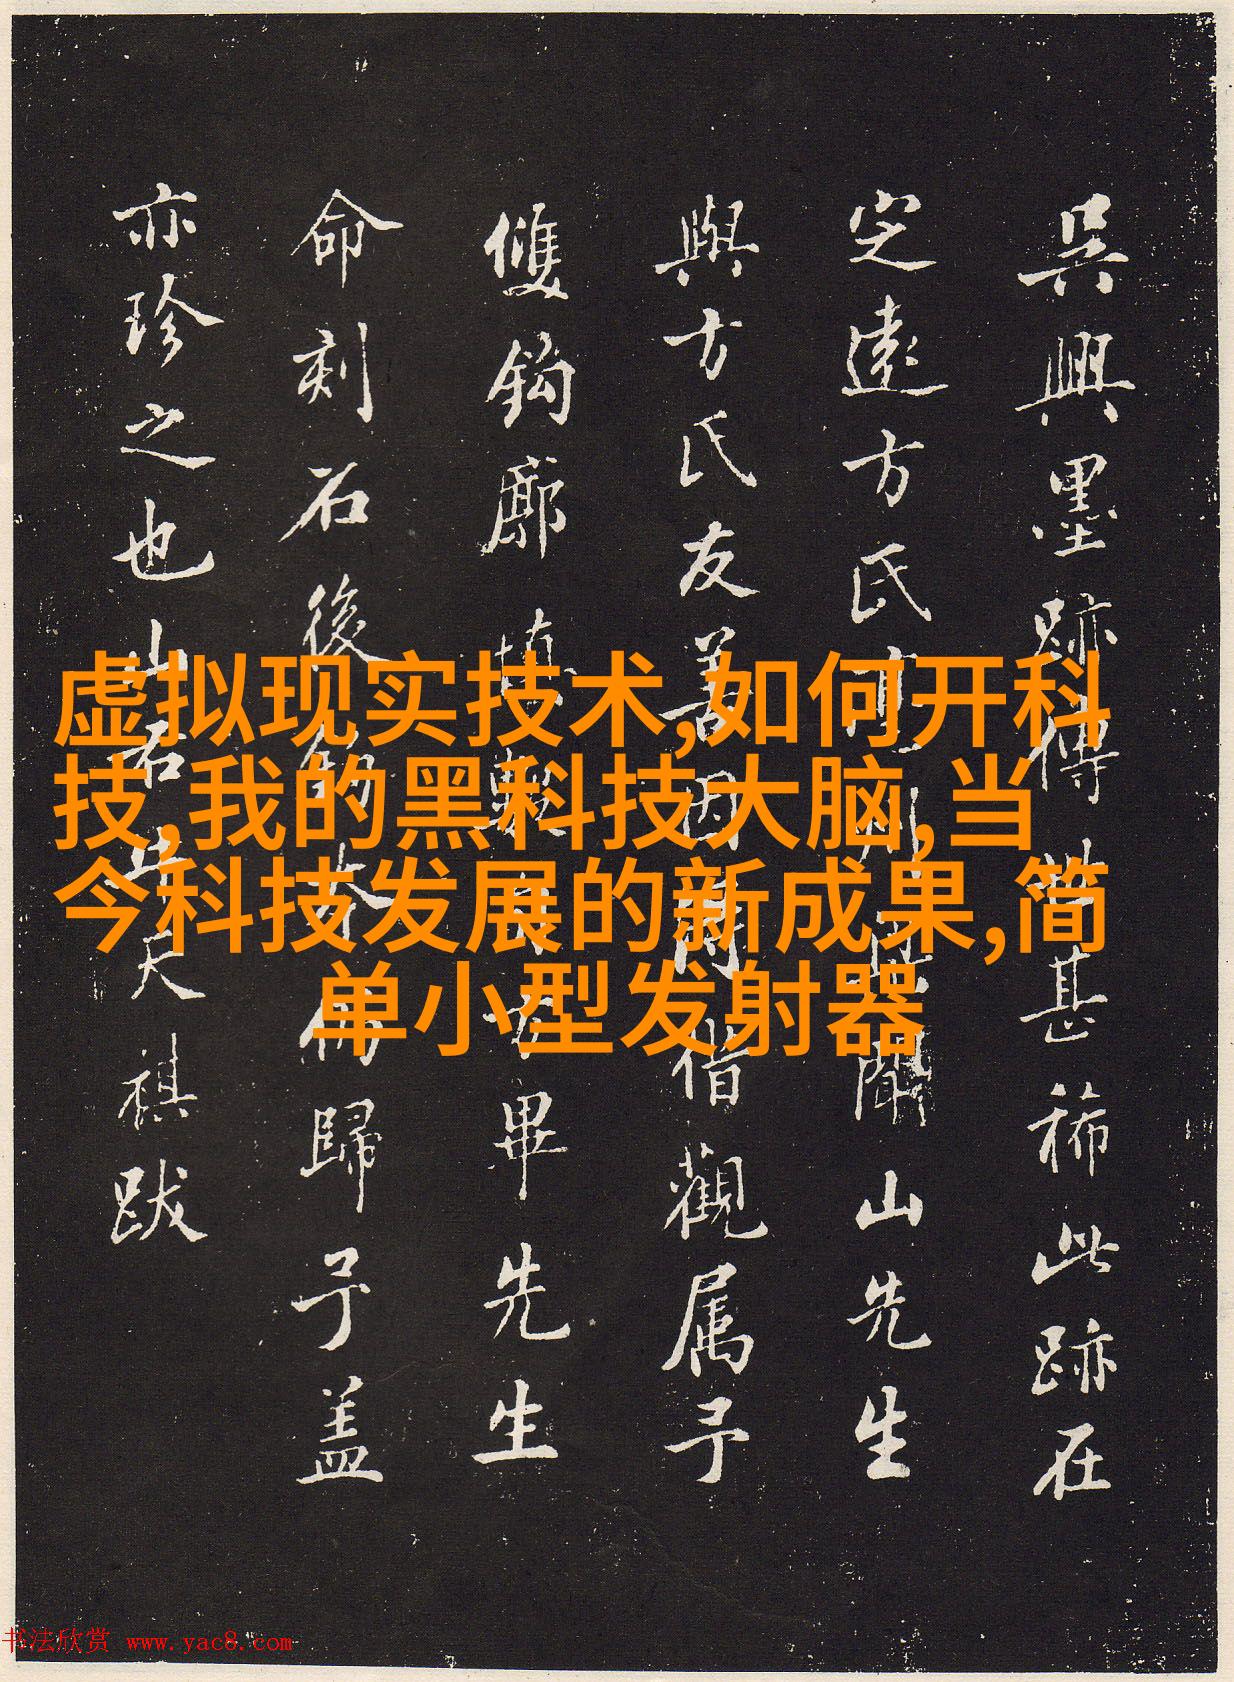 吳興墨跡傳世甚稀此跡在
定遠方氏聞山先生
與方氏友善因借觀属予
雙鈎廓填畢先生
命刻石後歸予蓋
亦珍之也山天祺跋
虚拟现实技术,如何开科
技,我的黑科技大脑,当
今科技发展的新成果,简
单小型发射器
书法欣赏 www.yac8.com